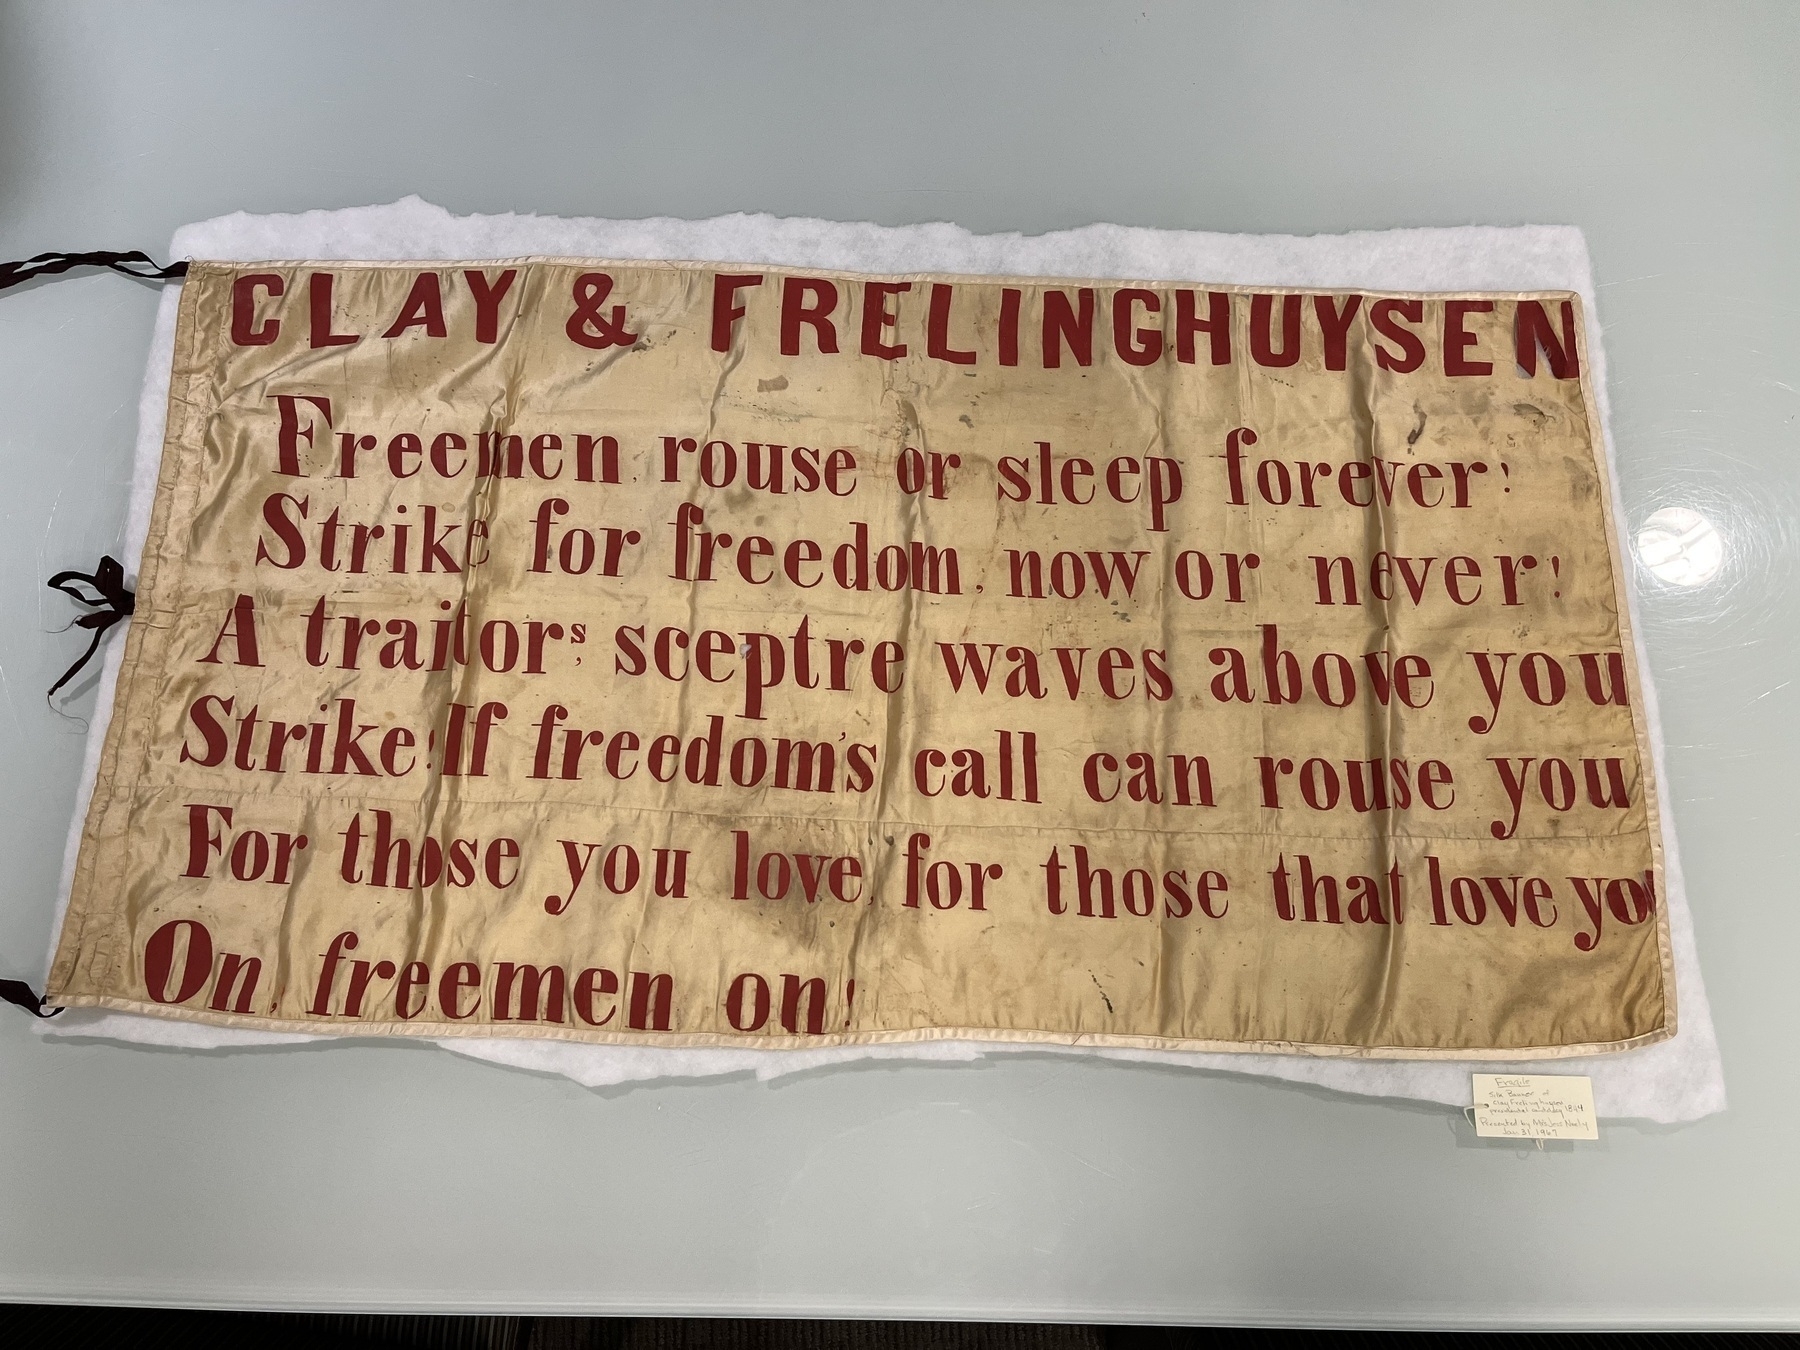 CLAY & FRELINGHUYSEN
Freemen, rouse or sleep forever!
Strike for freedom, now or never!
A traitors, sceptre waves above you
Strike! If freedom's call can rouse you
For those you love, for those that love you
On, freemen on!
Fragile
Silk Banner of
Clay Frelinghuysen
presidential candidacy 1844
Presented by Mrs Jno Neely
Jan. 31, 1967